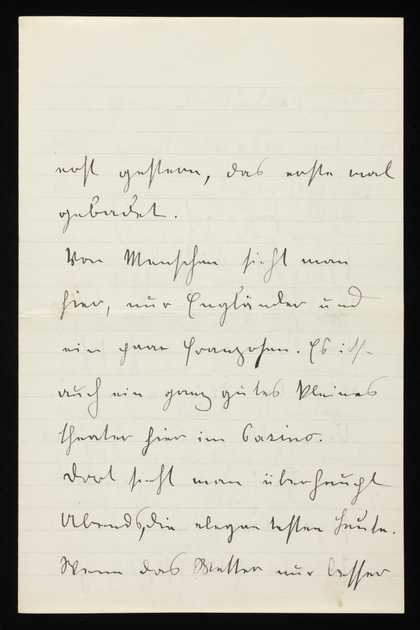 erst gestern, das erste mal
gebadet.
Von Menschen sieht man
hier, nur Engländer und
ein paar Franzosen. Es ist
auch ein ganz gutes kleines
theater hier im Casino.
Dort sieht man überhaupt
Abends, die elegantesten Leute.
Wenn das Wetter nur besser